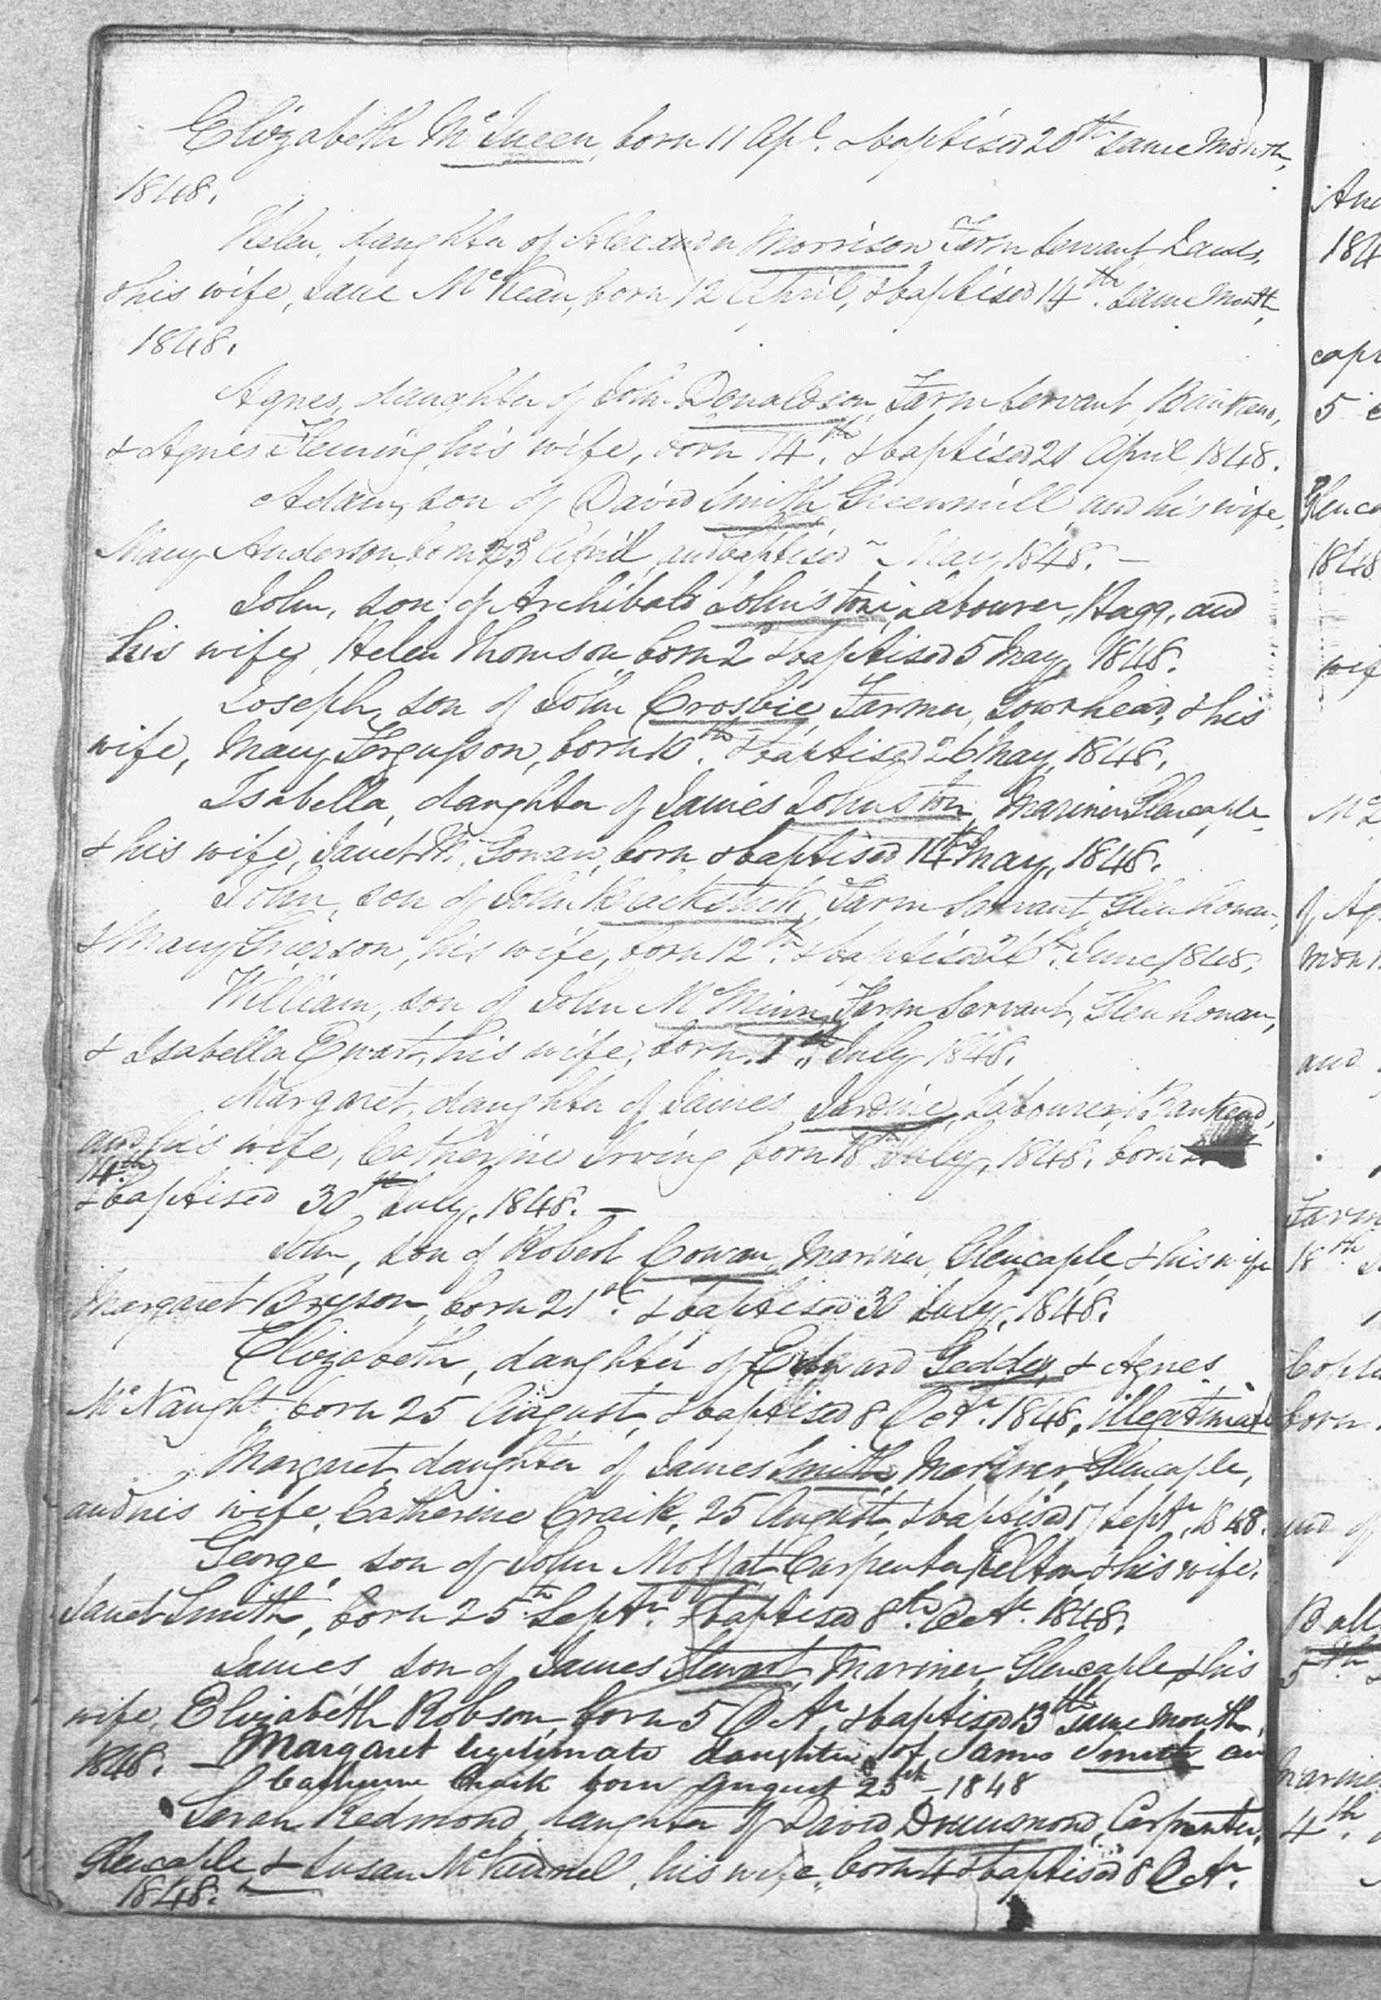 Elizabeth McQueen, born 11 Apl. & baptised 20th same Month,
1848.
Helen, daughter of Alexander Morrison Farm Servant Lands,
& his wife, Jane McKean, born 12 April, & baptised 14th same Month,
1848.
Agnes, daughter of John Donaldson, Farm Servant,
& Agnes Fleming his wife, born 14th, & baptised 21 April 1848.
Adam, son of David Smith, Greenmill, and his wife,
Mary Anderson, born 23d April, and baptised May, 1848. —
John, son of Archibald Johnstone, Labourer, Hagg, and
his wife, Helen Thomson, born 2d & baptised 5 May, 1848.
Joseph, son of John Crosbie Farmer, Townhead, & his
wife, Mary Fergusson, born 10th. & baptised 26 May, 1848.
Isabella, daughter of James Johnston, Mariner Glencaple
& his wife, Janet Mc Gowan, born & baptised 14th May, 1848.
John, son of John Blackstock, Farm Servant, Glenhowan,
& Mary Grierson, his wife, born 12th. & baptised 26th. June 1848.
William, son of John McMinn, Farm Servant, Glenhowan,
& Isabella Ewart, his wife, born July 1848.
Margaret, daughter of James Jardine, Labourer, Bankend,
and his wife, Catherine Irving born 18th July, 1848. born
14th
& baptised 30th July, 1848. —
John, son of Robert Cowan, Mariner, Glencaple, & his wife
Margaret Bryson, born 21st. & baptised 30 July, 1848.
Elizabeth, daughter of Edward Geddes, & Agnes
McNaught, born 25 August, & baptised 8 Octr. 1848. illegitimate
Margaret daughter of James Smith, Mariner, Glencaple,
and his wife, Catherine Craik, 25 August, & baptised 17 Septr. 1848.
George, son of John Moffat Carpenter Kelton, & his wife,
Janet Smith, born 25th. Septr. & baptised 8th. Octr. 1848.
James son of James Stewart, Mariner, Glencaple & his
wife, Elizabeth Robson, born 5 Octr. & baptised 13th same month,
1848. — Margaret legitimate daughter of James Smith an
Catherine Craik born August 25th – 1848
Sarah Redmond, daughter of David Drummond, Carpenter,
Glencaple & Susan McKinnel, his wife, born 4 & baptised 8 Octr.
1848. —
And
184
5
Glenca
1848
wife
McL
of Ag
month
and
Farm
18th
born
and of
Ball
5th
Mariner
4th.